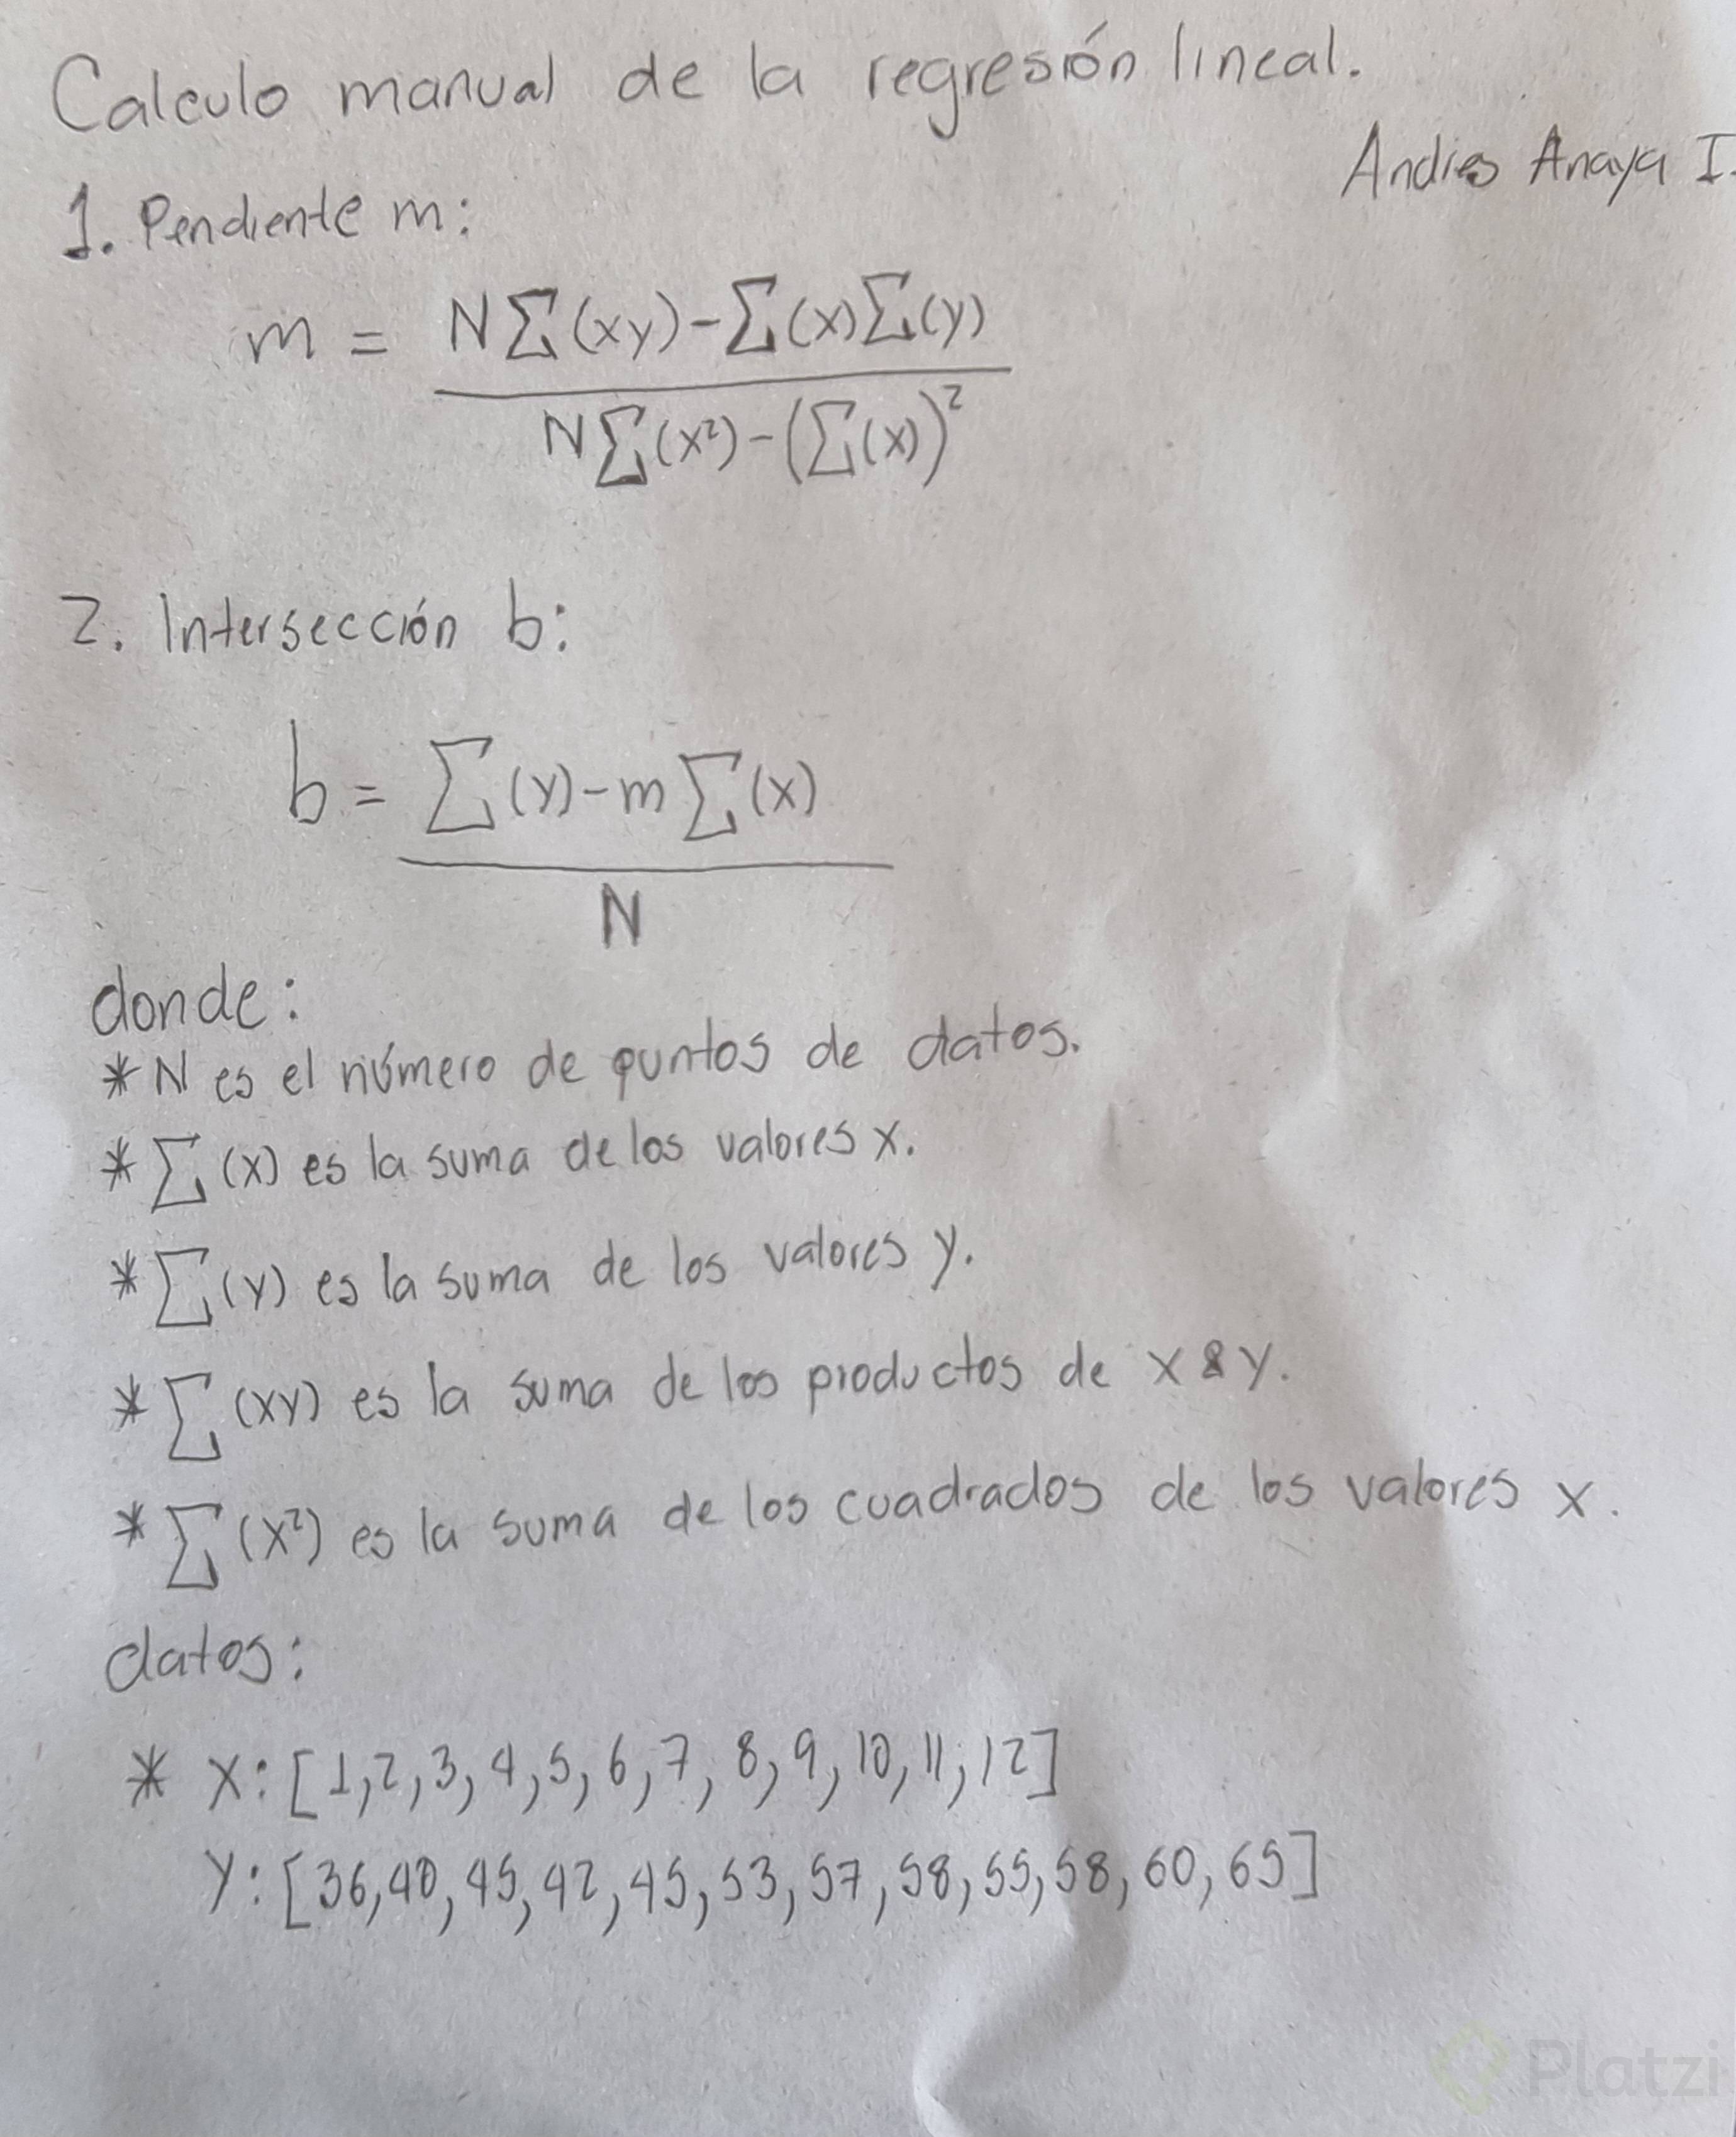 Calculo manual de la regresión lineal.
Andres Anaya I.
1. Pendiente m:
m = N∑(xy)-∑(x)∑(y)
N∑(x²)-(∑(x))²
2. Intersección b:
b = ∑(y)-m∑(x)
N
donde:
* N es el número de puntos de datos.
* ∑(x) es la suma de los valores x.
* ∑(y) es la suma de los valores y.
* ∑(xy) es la suma de los productos de x & y.
* ∑(x²) es la suma de los cuadrados de los valores x.
datos:
* x: [1,2,3,4,5,6,7,8,9,10,11,12]
y: [36,40,45,42,45,53,57,58,55,58,60,65]
Platzi